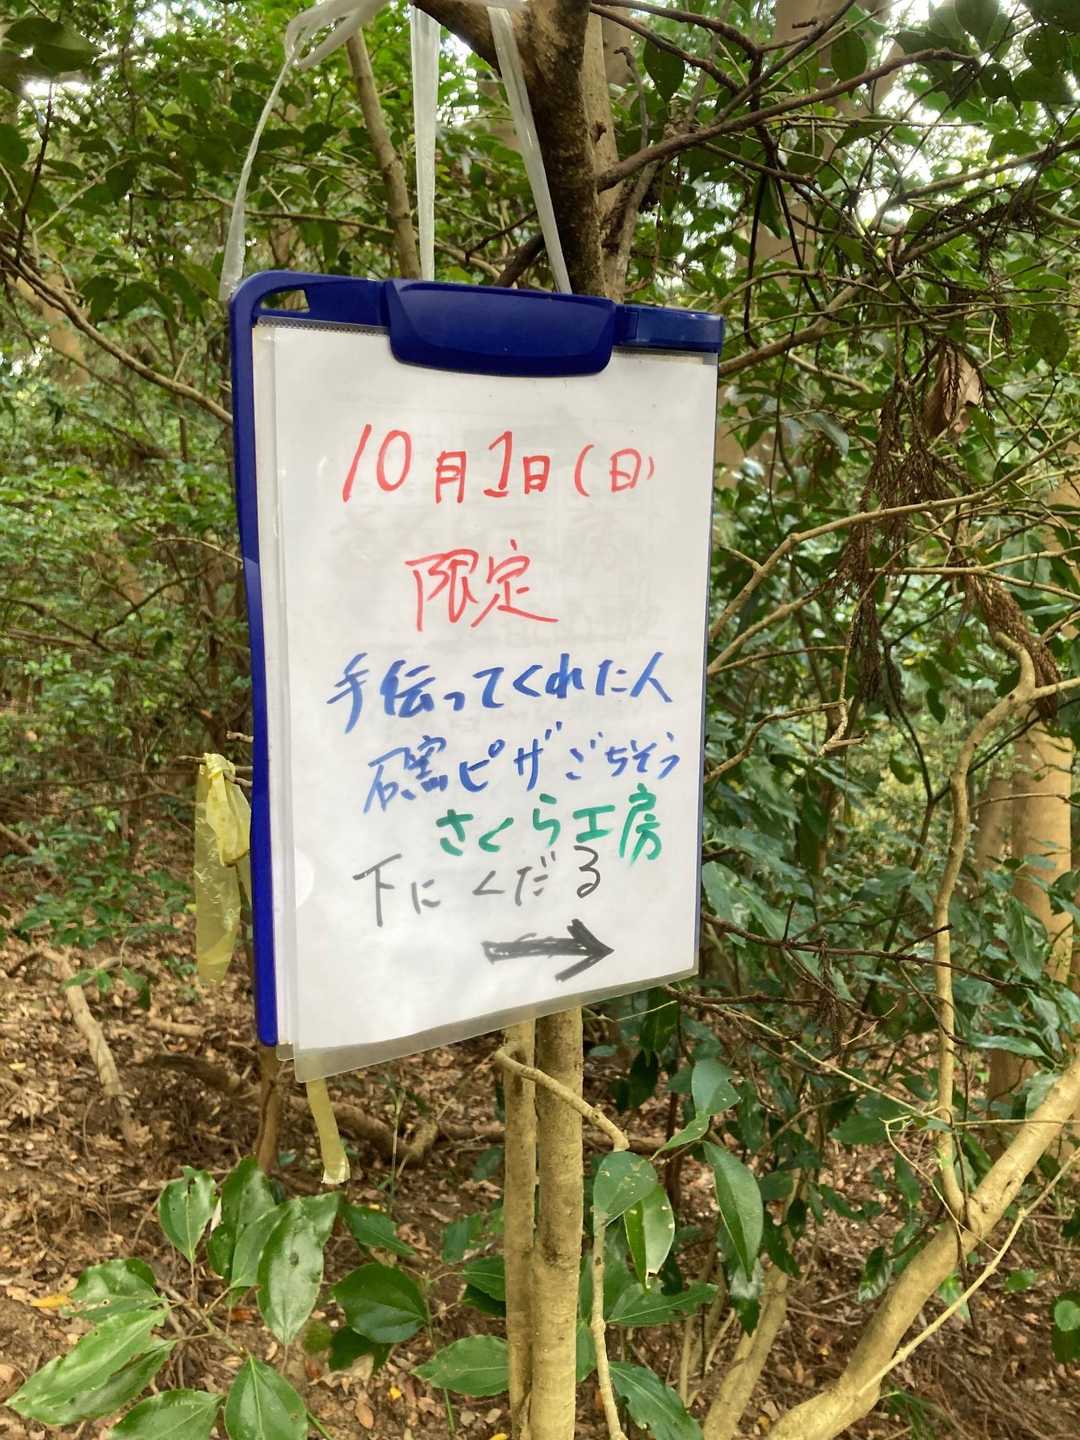 10月1日(日)
限定
手伝ってくれた人
石窯ピザごちそう
さくら工房
下にくだる
→